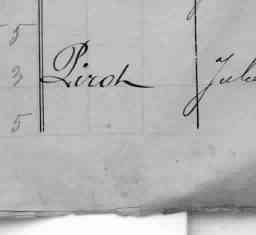 5
3 Piroh Juli
5